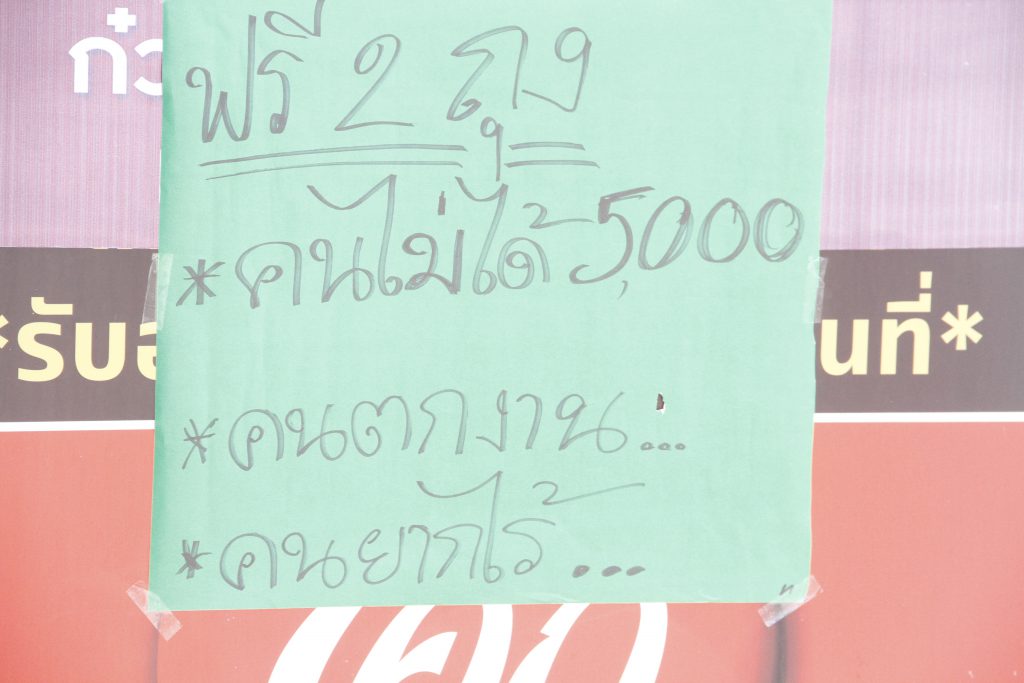 ก๋ว
ฟรี 2 ถุง
*คนไม่ได้ 5,000
*รับ
นที่*
*คนตกงาน...
*คนยากไร้...